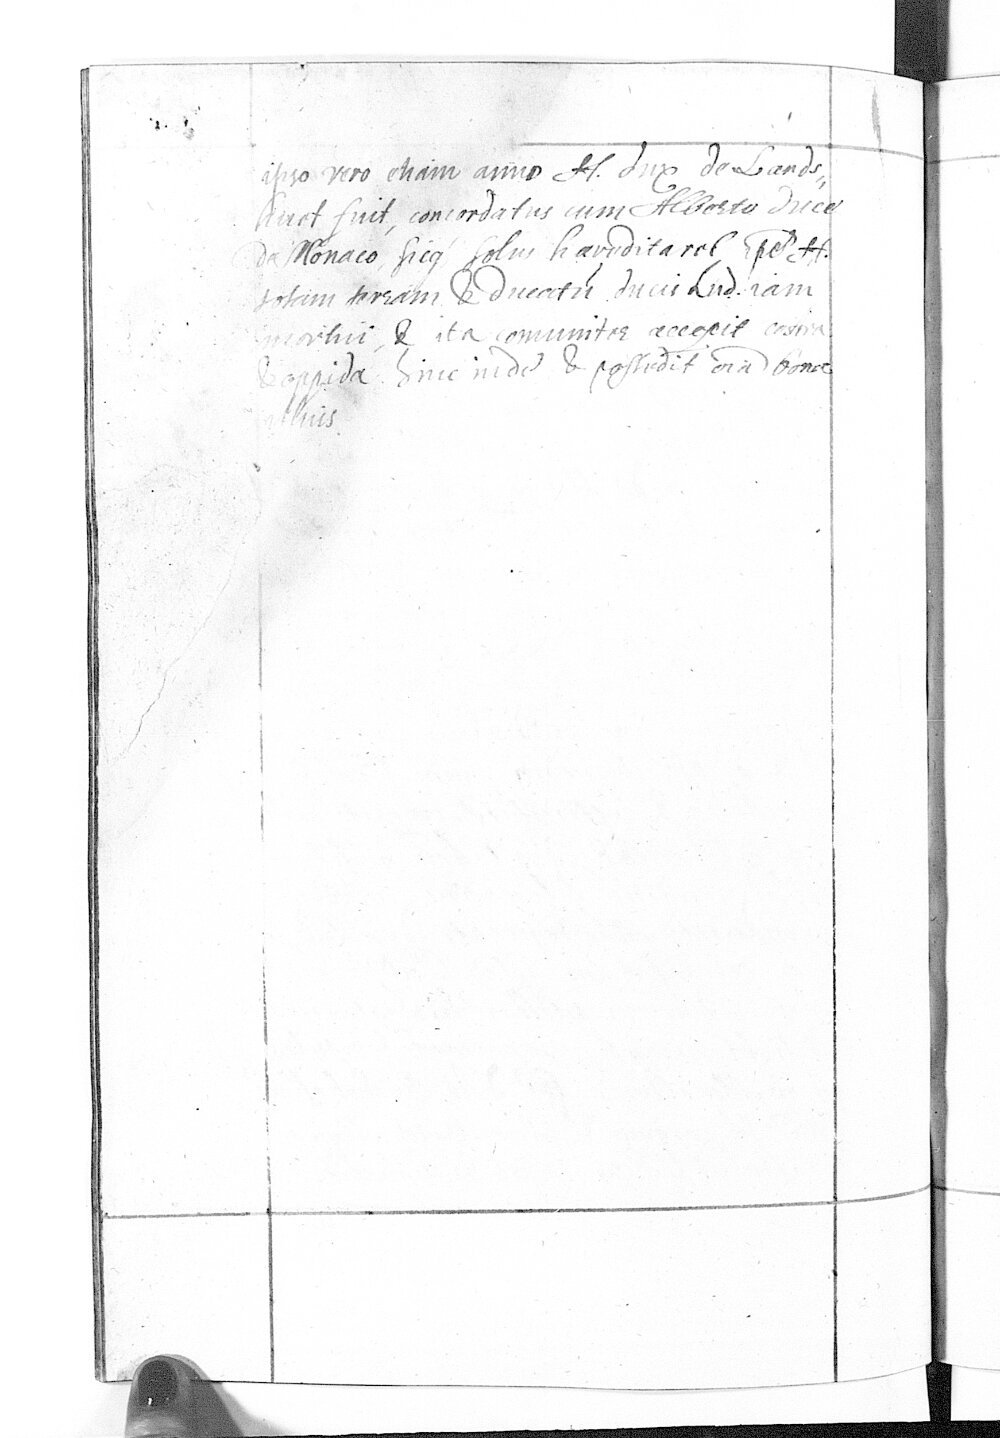 ipso vero etiam anno H. dux de Lands„
huet fuit, concordatus cum Alberto Duce
de Monaco, sicq́ solus hæreditaret, H.
totam terram & Ducatū ducis Lud. iam
mortui, & ita comuniter accepit castra
& oppida hinc inde & possedit oīa bona
illius.